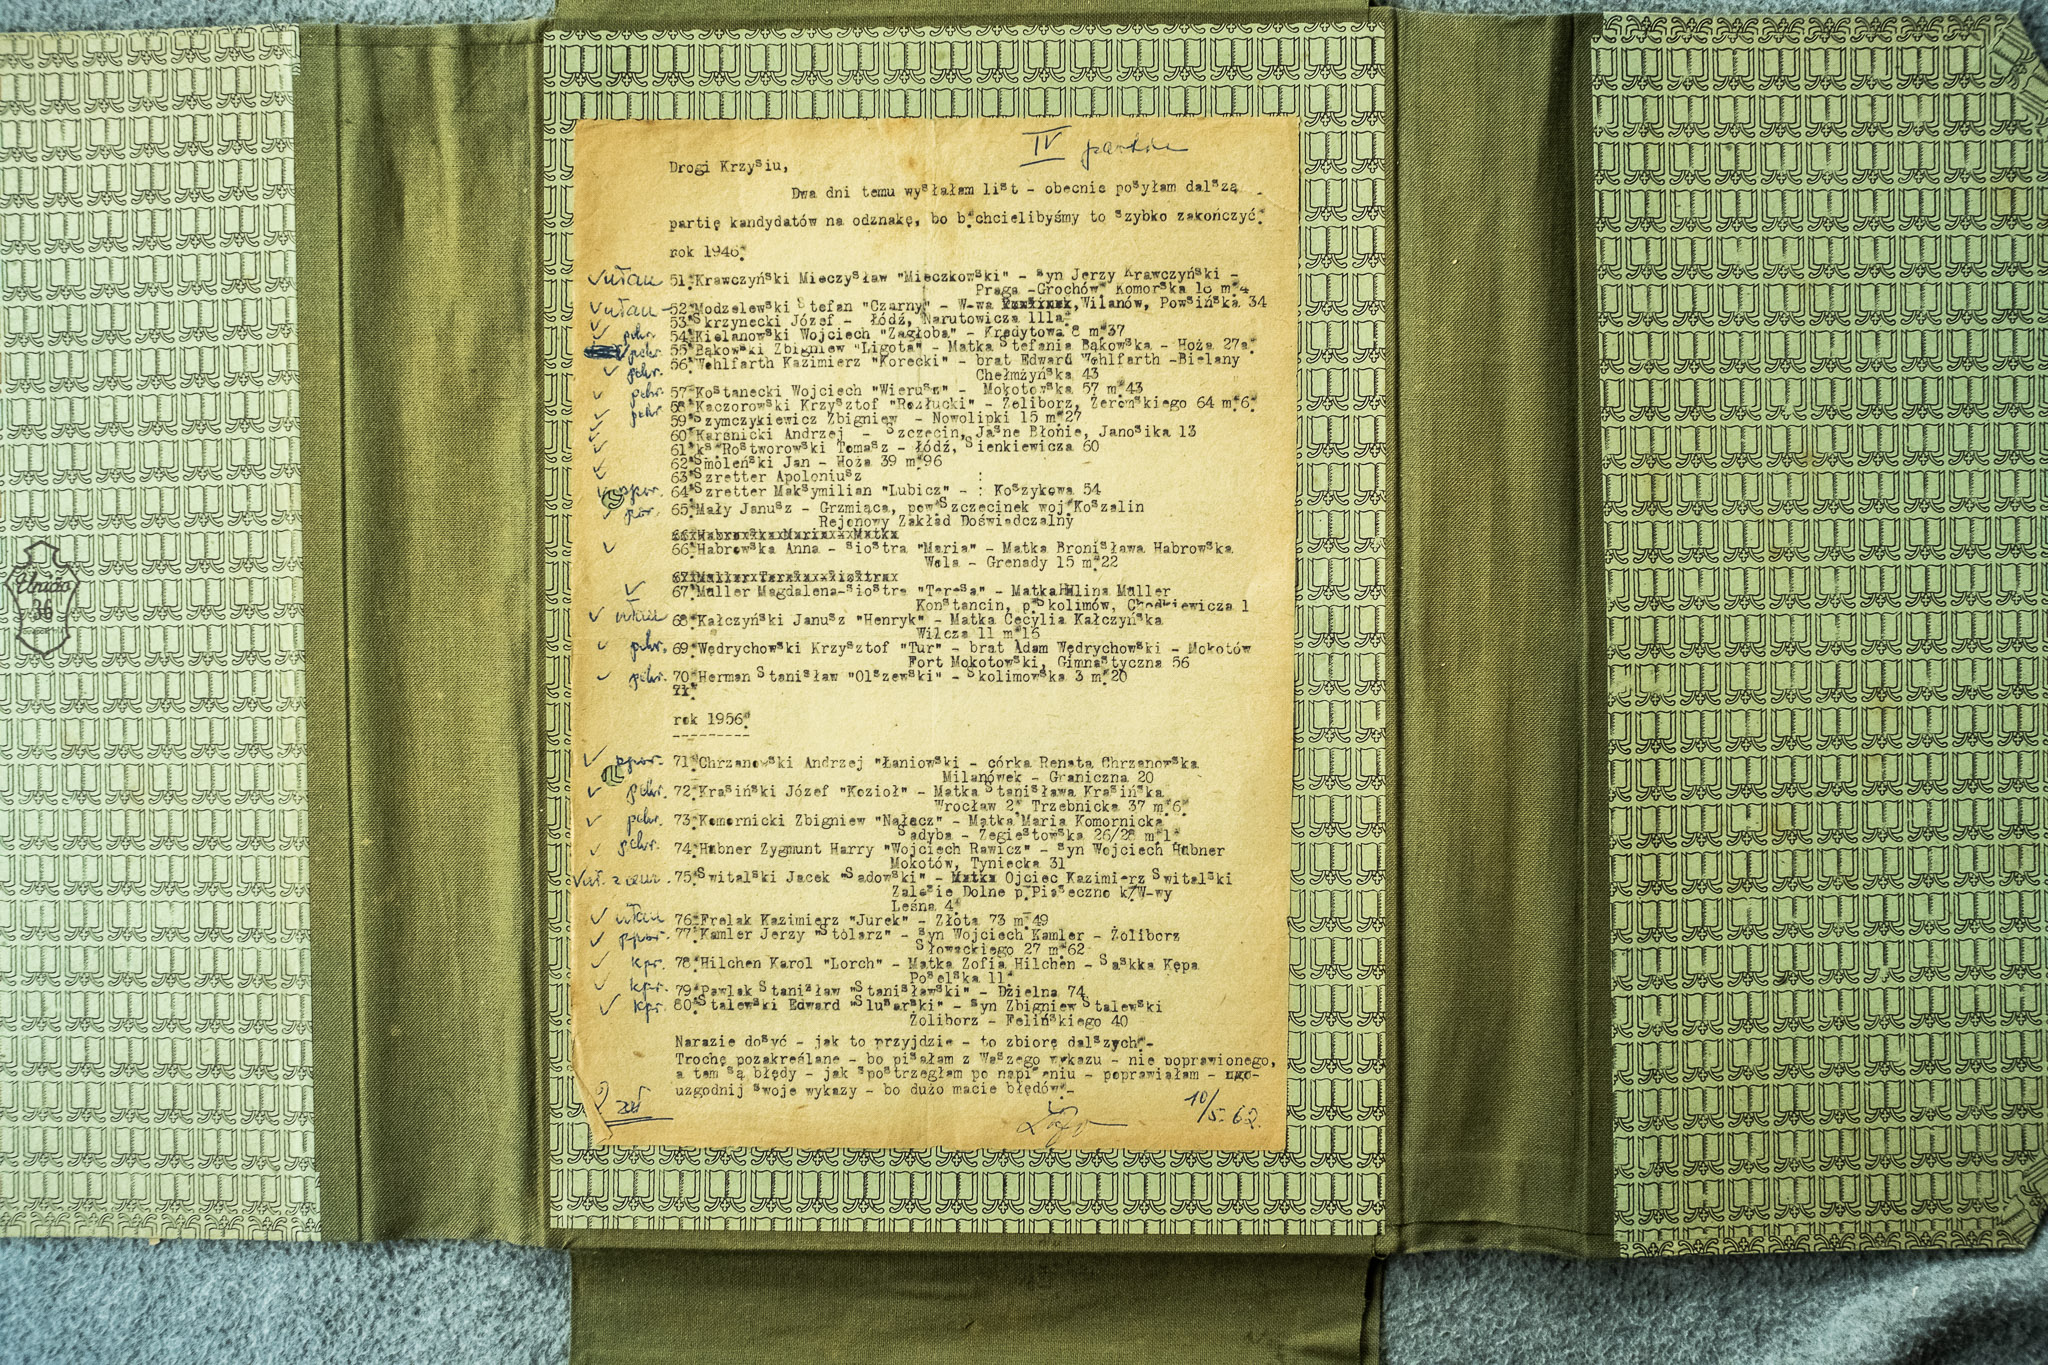 IV partia
Drogi Krzysiu,
Dwa dni temu wysłałam list - obecnie posyłam dalszą
partię kandydatów na odznakę, bo b.chcielibyśmy to szybko zakończyć.
rok 1946.
V ułan 51.Krawczyński Mieczysław "Mieczkowski" - syn Jerzy Krawczyński -
Praga -Grochów Komorska 16 m.4
V ułan 52.Modzelewski Stefan "Czarny" - W-wa Wilanów, Powsińska 34
53.Skrzynecki Józef - Łódź, Narutowicza 111a
pchr. 54.Kielanowski Wojciech "Zagłoba" - Kredytowa 8 m.37
pchr. 55.Bąkowski Zbigniew "Ligota" - Matka Stefania Bąkowska - Hoża 27a.
pchr. 56.Wohlfarth Kazimierz "Korecki" - brat Edward Wohlfarth -Bielany
Chełmżyńska 43
pchr. 57.Kostanecki Wojciech "Wierusz" - Mokotowska 57 m.43
pchr. 58.Kaczorowski Krzysztof "Rozłucki" - Żoliborz, Żeromskiego 64 m.6.
59.Szymczykiewicz Zbigniew - Nowolipki 15 m.27
60.Karśnicki Andrzej - Szczecin, Jasne Błonie, Janosika 13
61.ks.Rostworowski Tomasz - Łódź, Sienkiewicza 60
62.Smoleński Jan - Hoża 39 m.96
63.Szretter Apoloniusz :
ppor. 64.Szretter Maksymilian "Lubicz" - : Koszykowa 54
por. 65.Mały Janusz - Grzmiąca, pow.Szczecinek woj.Koszalin
Rejonowy Zakład Doświadczalny
66.Habrowska Maria - Matka
66.Habrowska Anna - siostra "Maria" - Matka Bronisława Habrowska
Wola - Grenady 15 m.22
67.Muller Teresa - siostra
67.Muller Magdalena-siostra "Teresa" - Matka Halina Muller
Konstancin, p.Skolimów, Chodkiewicza 1
ułan 68.Kałczyński Janusz "Henryk" - Matka Cecylia Kałczyńska
Wilcza 11 m.16
pchr. 69.Wędrychowski Krzysztof "Tur" - brat Adam Wędrychowski - Mokotów
Fort Mokotowski, Gimnastyczna 56
pchr. 70.Herman Stanisław "Olszewski" - Skolimowska 3 m.20
71.
rok 1956.
---------
ppor. 71.Chrzanowski Andrzej "Łaniowski - córka Renata Chrzanowska
Milanówek - Graniczna 20
pchr. 72.Krasiński Józef "Kozioł" - Matka Stanisława Krasińska
Wrocław 2, Trzebnicka 37 m.6.
pchr. 73.Komornicki Zbigniew "Nałęcz" - Matka Maria Komornicka
Sadyba - Żegiestowska 26/28 m.1.
pchr. 74.Hubner Zygmunt Harry "Wojciech Rawicz" - syn Wojciech Hubner
Mokotów, Tyniecka 31
V uł. z cenz. 75.Świtalski Jacek "Sadowski" - Matka Ojciec Kazimierz Świtalski
Zalesie Dolne p.Piaseczno k/W-wy
Leśna 4.
ułan 76.Frelak Kazimierz "Jurek" - Złota 73 m.49
ppor. 77.Kamler Jerzy "Stolarz" - syn Wojciech Kamler - Żoliborz
Słowackiego 27 m.62
kpr. 78.Hilchen Karol "Lorch" - Matka Zofia Hilchen - Saskka Kępa
Poselska 11.
kpr. 79.Pawlak Stanisław "Stanisławski" - Dzielna 74
kpr. 80.Stalewski Edward "Slusarski" - syn Zbigniew Stalewski
Żoliborz - Felińskiego 40
Narazie dosyć - jak to przyjdzie - to zbiorę dalszych.-
Trochę pozakreślane - bo pisałam z Waszego wykazu - nie poprawionego,
a tam są błędy - jak spostrzegłam po napisaniu - poprawiałam -
uzgodnij swoje wykazy - bo dużo macie błędów.-
10/5.62.
Unica
36